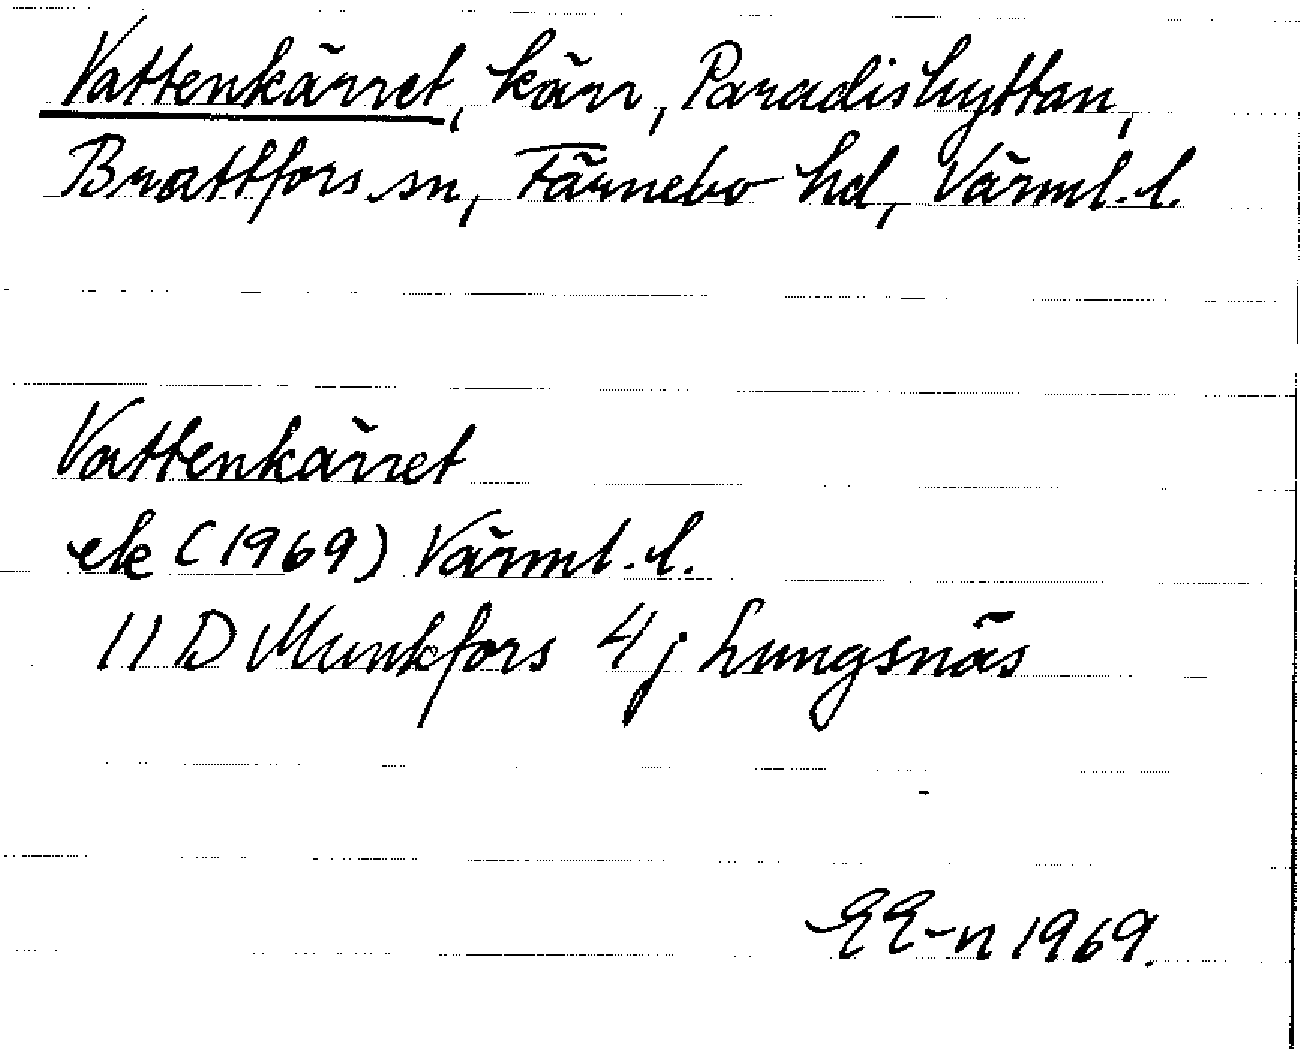 Vattenkärret, kärr, Paradishyttan,
Brattfors sn, Färnebo hd, Värml. l.
Vattenkärret
ek (1969) Värml. l.
11 D Munkfors 4j Lungsnäs
EE-n 1969.